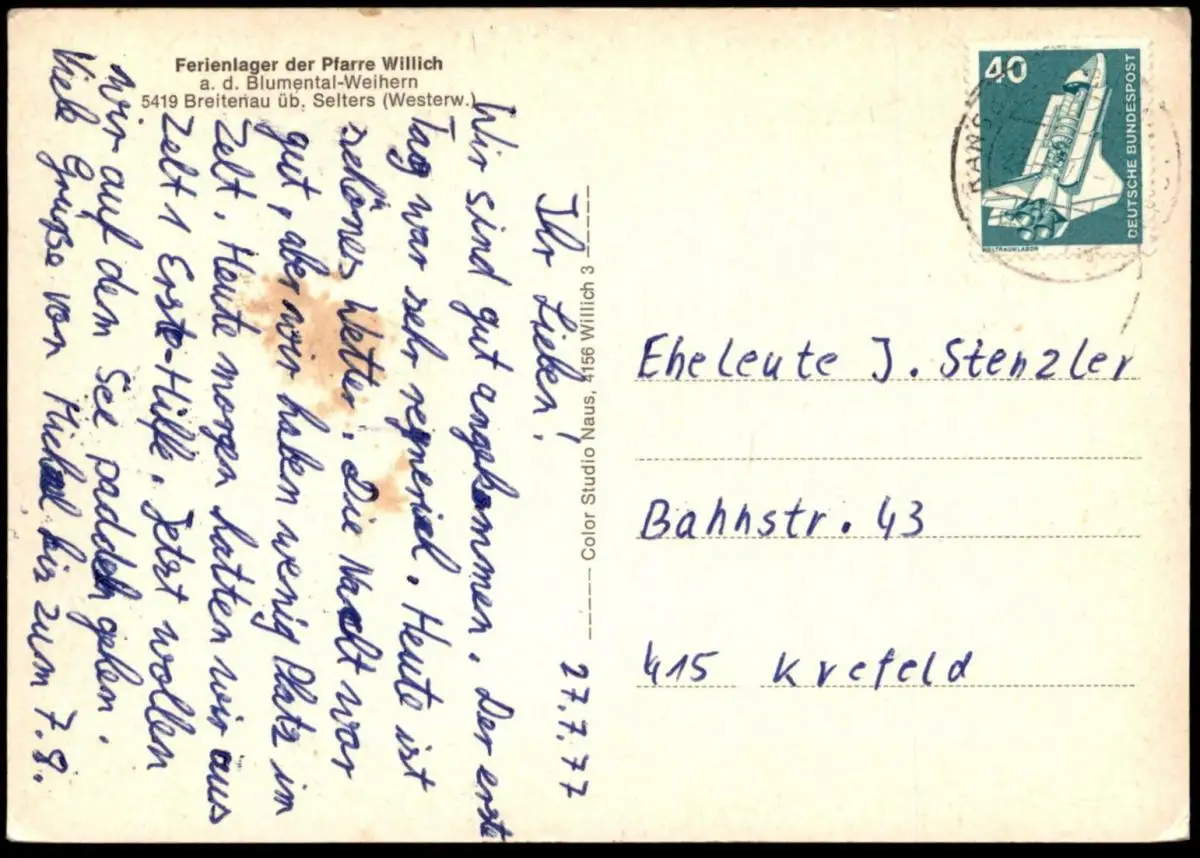 Ferienlager der Pfarre Willich
a. d. Blumental-Weihern
5419 Breitenau üb. Selters (Westerw.)
27.7.77
Ihr Lieben!
Wir sind gut angekommen. Der erste
Tag war sehr regnerich. Heute ist
schönes Wetter. Die Nacht war
gut, aber wir haben wenig Platz im
Zelt. Heute morgen hatten wir aus
Zelt 1 Erste-Hilfe. Jetzt wollen
wir auf dem See paddeln gehen.
Viele Grüße von Michael bis zum 7.8.
Color Studio Naus, 4156 Willich 3
40
DEUTSCHE BUNDESPOST
WELTRAUMLABOR
RANSB
Eheleute J. Stenzler
Bahnstr. 43
415 Krefeld